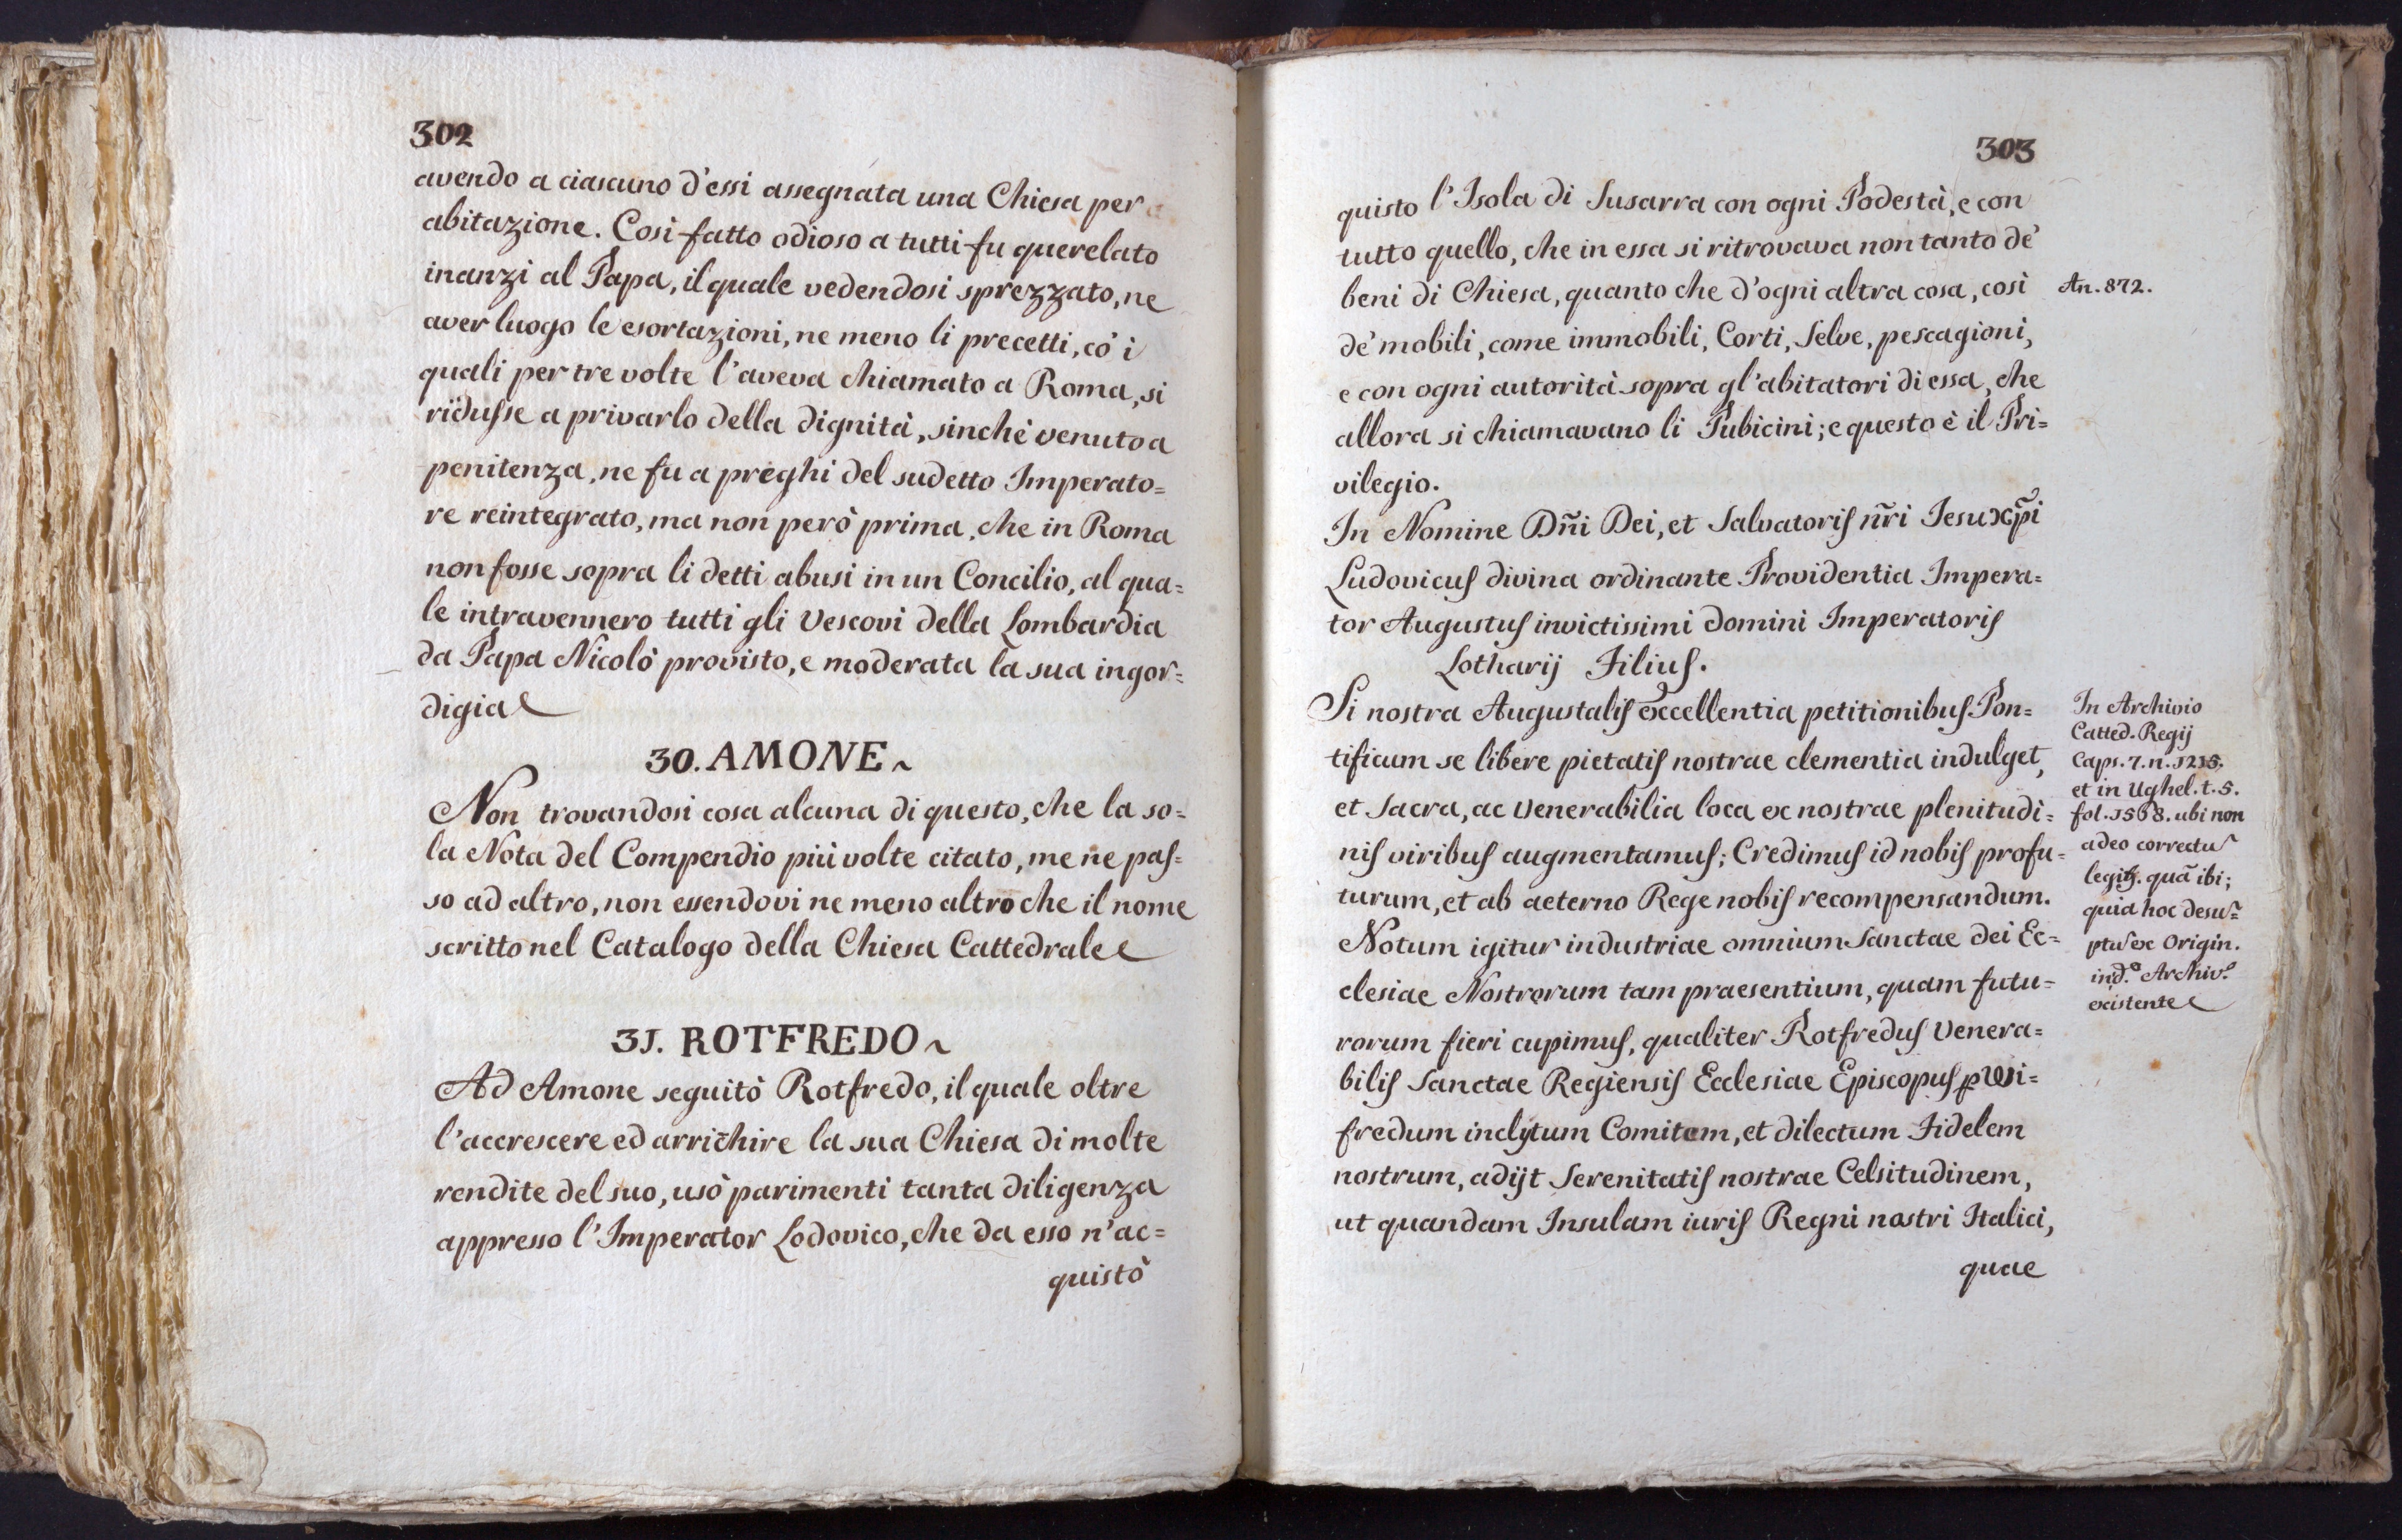 302
avendo a ciascuno d'essi assegnata una Chiesa per
abitazione. Così fatto odioso a tutti fu querelato
inanzi al Papa, il quale vedendosi sprezzato, ne
aver luogo le esortazioni, ne meno li precetti, co' i
quali per tre volte l'aveva chiamato a Roma, si
ridusse a privarlo della dignità, sinchè venuto a
penitenza, ne fu a preghi del sudetto Imperato=
re reintegrato, ma non però prima, che in Roma
non fosse sopra li detti abusi in un Concilio, al qua=
le intravennero tutti gli Vescovi della Lombardia
da Papa Nicolò provisto, e moderata la sua ingor=
digia
30. AMONE ~
Non trovandosi cosa alcuna di questo, che la so=
la Nota del Compendio più volte citato, me ne pas=
so ad altro, non essendovi ne meno altro che il nome
scritto nel Catalogo della Chiesa Cattedrale
31. ROTFREDO ~
Ad Amone seguitò Rotfredo, il quale oltre
l'accrescere ed arrichire la sua Chiesa di molte
rendite del suo, usò parimenti tanta diligenza
appresso l'Imperator Lodovico, che da esso n'ac=
quistò
303
quisto l'Isola di Susarra con ogni Podestà, e con
tutto quello, che in essa si ritrovava non tanto de'
beni di Chiesa, quanto che d'ogni altra cosa, così
An. 872.
de' mobili, come immobili, Corti, Selve, pescagioni,
e con ogni autorità sopra gl'abitatori di essa, che
allora si chiamavano li Pubicini; e questo è il Pri=
vilegio.
In Nomine Dñi Dei, et Salvatoris ñri Jesu xp̃i
Ludovicus divina ordinante Providentia Impera=
tor Augustus invictissimi domini Imperatoris
Lotharij Filius.
Si nostra Augustalis excellentia petitionibus Pon=
tificum se libere pietatis nostrae clementia indulget,
et sacra, ac venerabilia loca ex nostrae plenitudi=
nis viribus augmentamus; Credimus id nobis profu=
turum, et ab aeterno Rege nobis recompensandum.
Notum igitur industriae omnium Sanctae dei Ec=
clesiae Nostrorum tam praesentium, quam futu=
rorum fieri cupimus, qualiter Rotfredus Venera=
bilis Sanctae Regiensis Ecclesiae Episcopus p Wi=
fredum inclytum Comitem, et dilectum Fidelem
nostrum, adijt Serenitatis nostrae Celsitudinem,
ut quandam Insulam iuris Regni nostri Italici,
quae
In Archivio
Catted. Regij
Caps. 7. n.
et in Ughel. t. 5.
fol. 1568. ubi non
adeo correctu
quã ibi;
quia hoc desu=
ptu ex Origin.
ind.º Archiv.º
existente